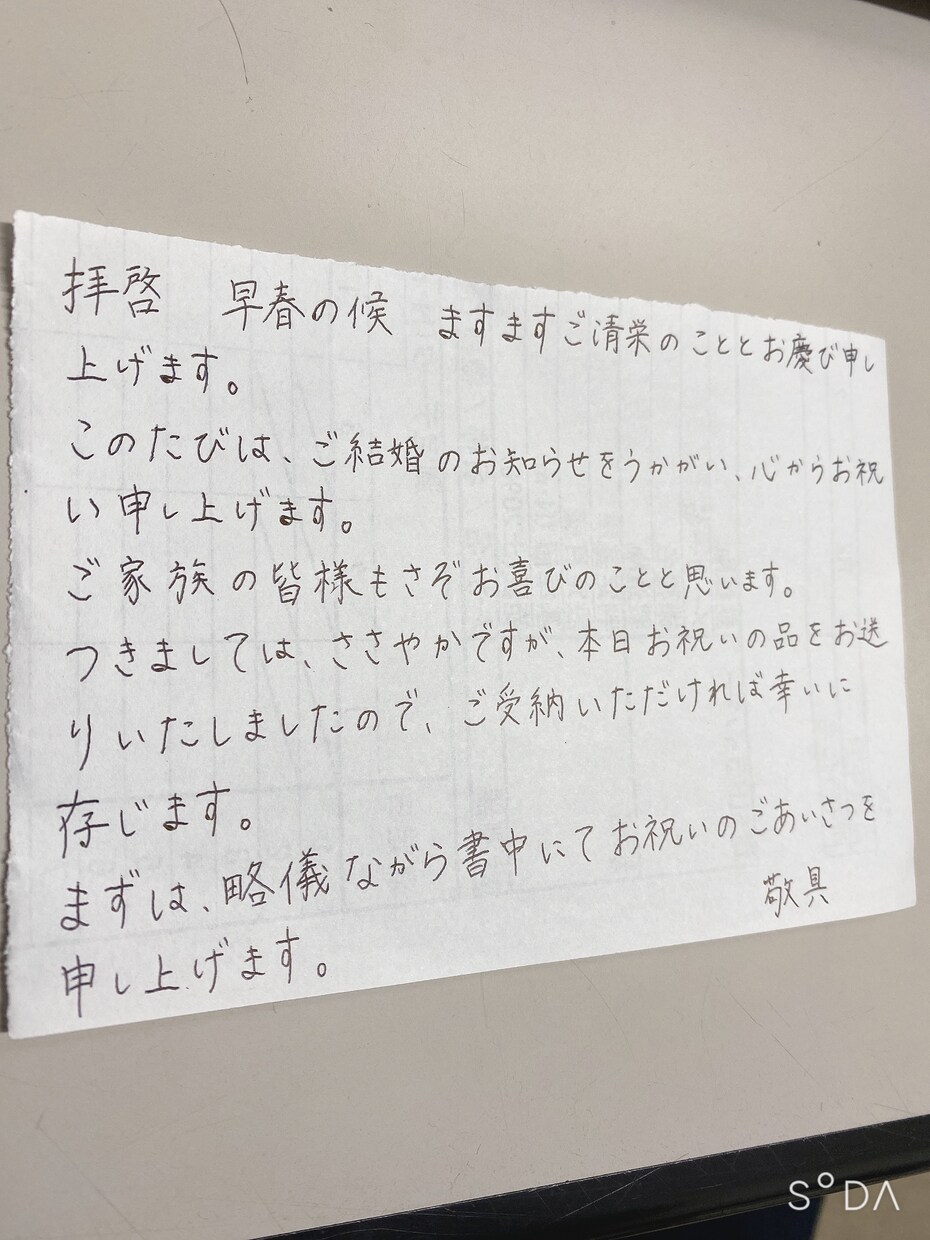 拝啓　早春の候　ますますご清栄のこととお慶び申し
上げます。
このたびは、ご結婚のお知らせをうかがい、心からお祝
い申し上げます。
ご家族の皆様もさぞお喜びのことと思います。
つきましては、ささやかですが、本日お祝いの品をお送
りいたしましたので、ご受納いただければ幸いに
存じます。
まずは、略儀ながら書中にてお祝いのごあいさつを
申し上げます。
敬具
SODA